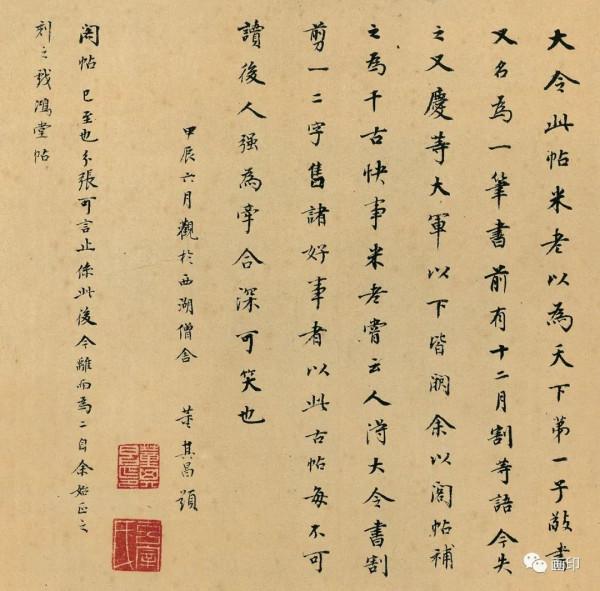 大令此帖米老以為天下第一子敬書
又名為一筆書前有十二月割等語今失
之又慶等大軍以下皆闕余以閣帖補
之為千古快事米老嘗云人得大令書割
剪一二字售諸好事者以此古帖每不可
讀後人强為牽合深可笑也
甲辰六月觀於西湖僧舍 董其昌題
閣帖 已至也分張可言止係此後今離而為二自余始正之
刻之戏鴻堂帖
画印